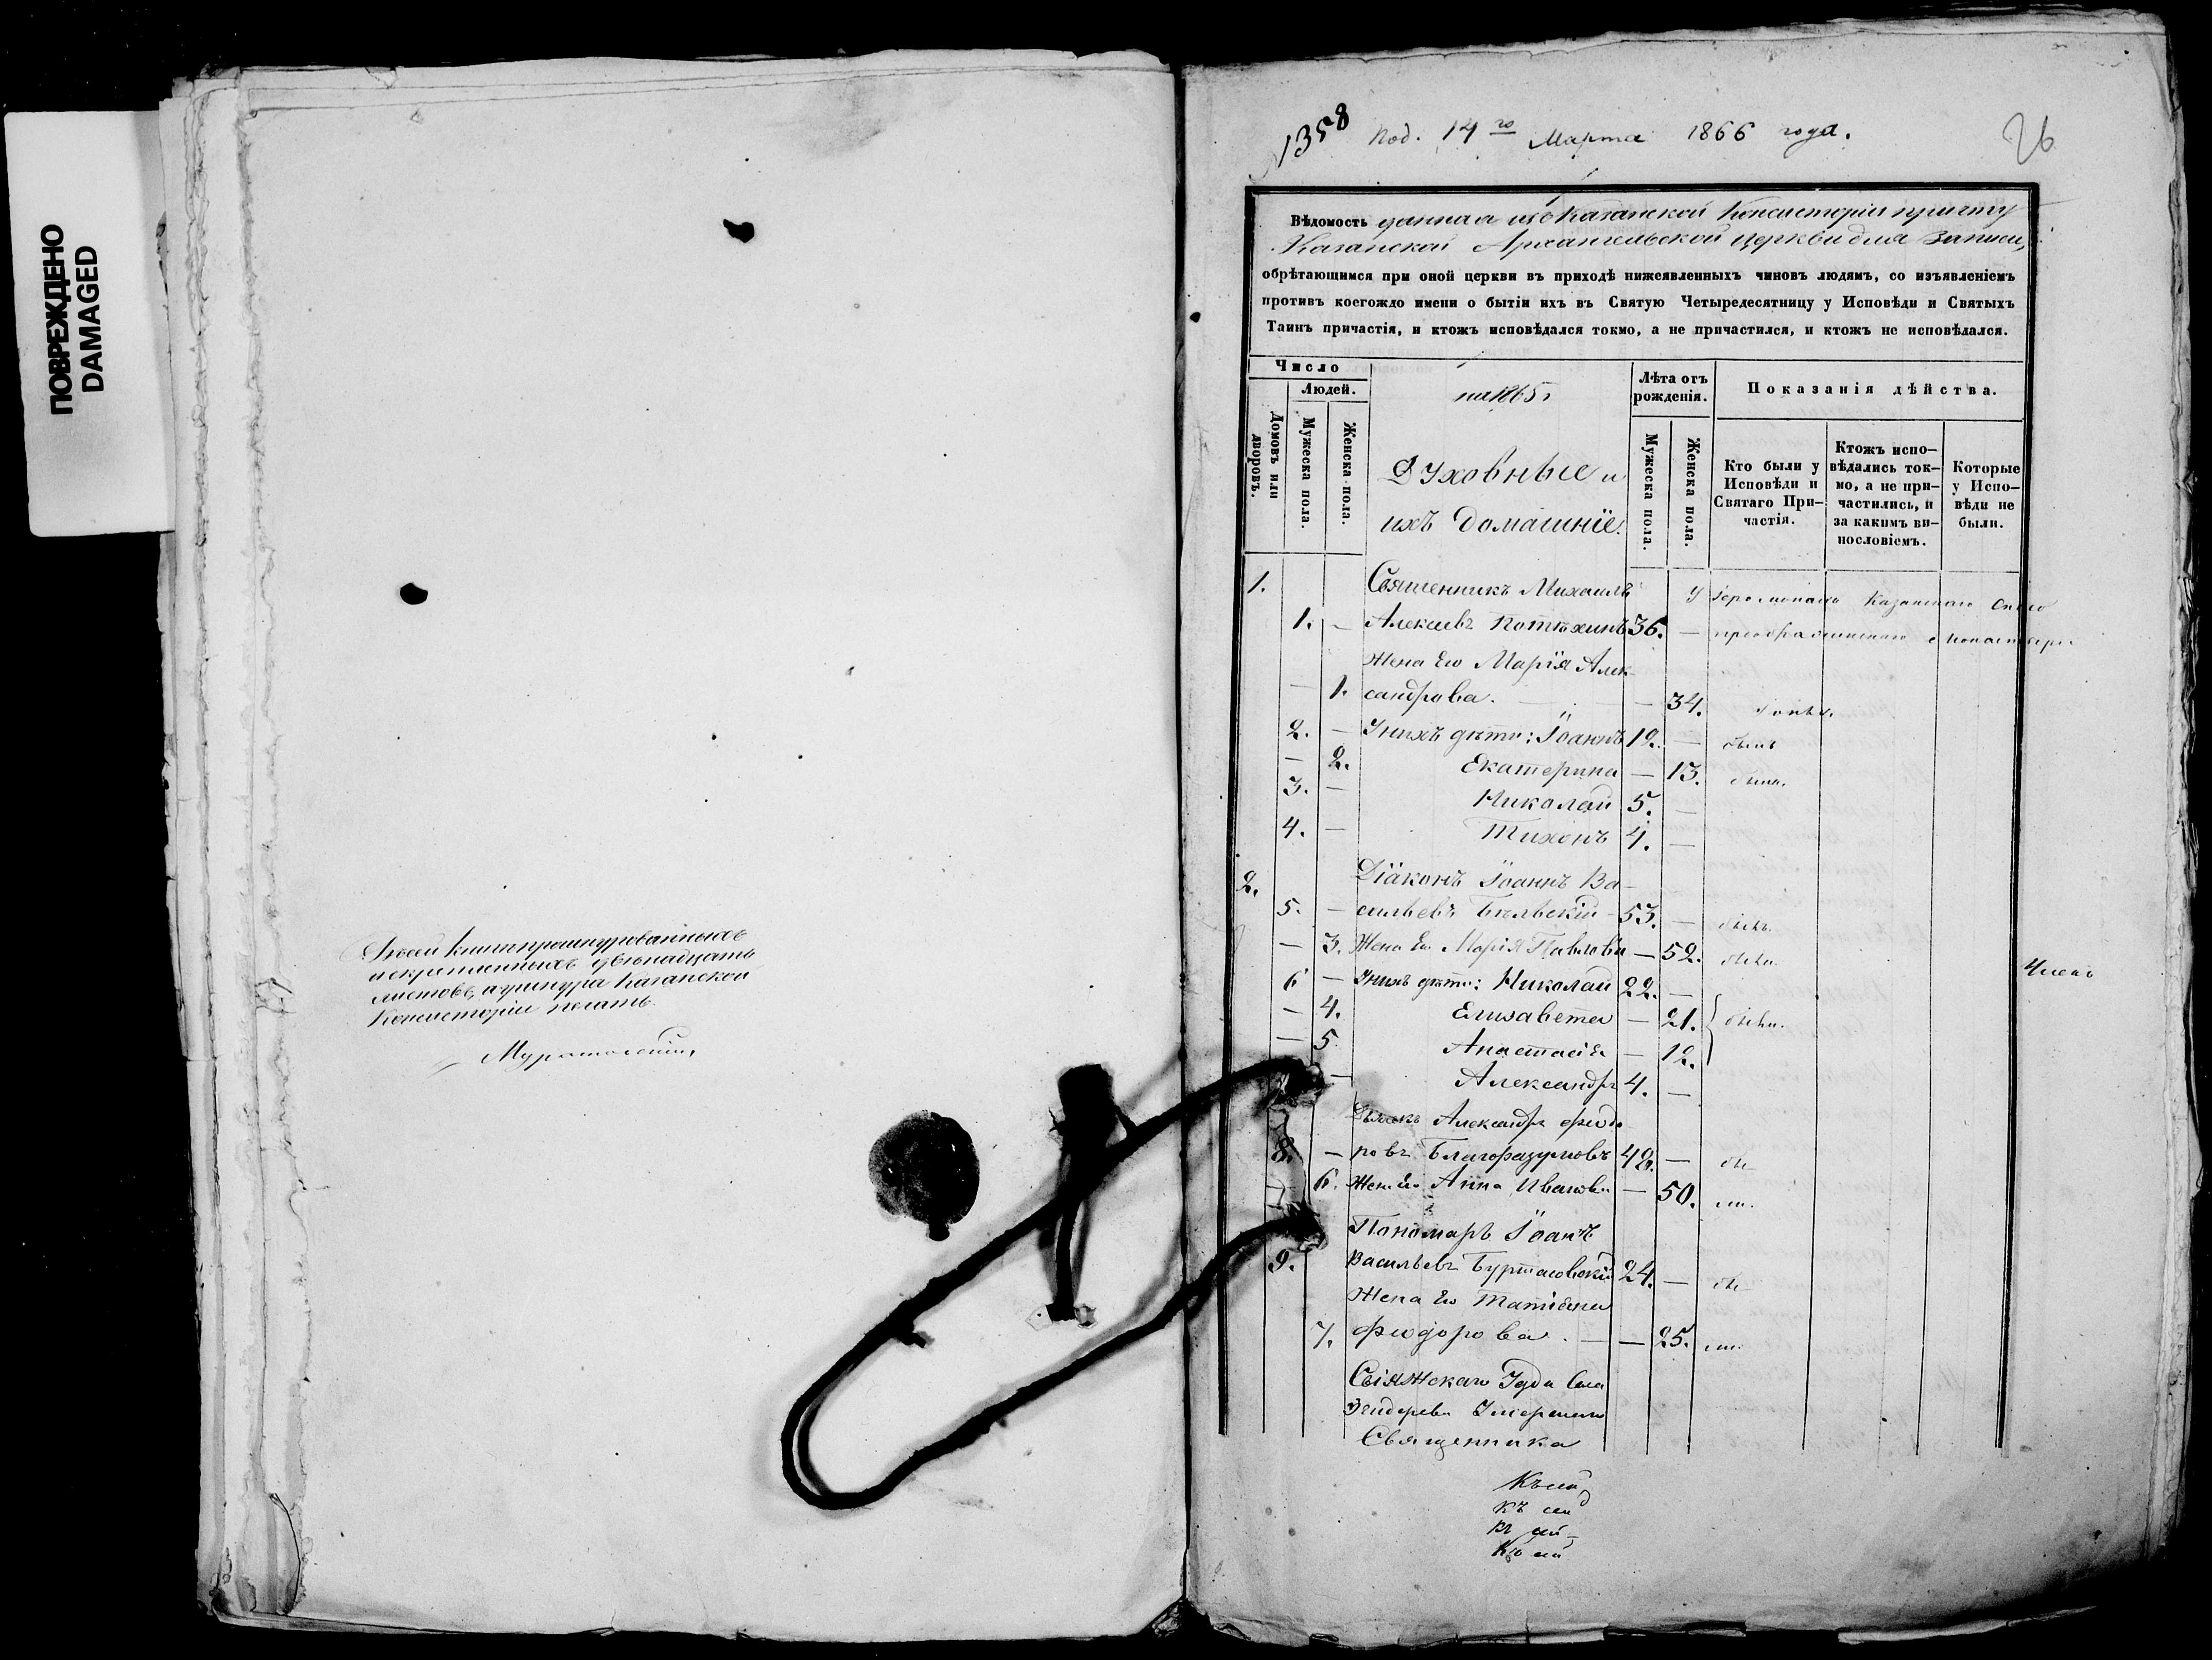 ПОВРЕЖДЕНО
DAMAGED
листовъ, а у шнура Казанской
Консисторіи печать.
1358 Под. 14го Марта 1866 года.
26
Вѣдомость данная изъ Казанской Консисторіи причту
Казанской Архангельской церкви для записи,
обрѣтающимся при оной церкви въ приходѣ нижеявленныхъ чиновъ людямъ, со изъявленіемъ
противъ коегождо имени о бытіи ихъ въ Святую Четыредесятницу у Исповѣди и Святыхъ
Таинъ причастія, и ктожъ исповѣдался токмо, а не причастился, и ктожъ не исповѣдался.
Число
Людей.
Домовъ или дворовъ.
Мужеска пола.
Женска пола.
на 1865 г
Духовные и
ихъ домашніе.
Лѣта отъ
рожденія.
Мужеска пола.
Женска пола.
Показанія дѣйства.
Кто были у
Исповѣди и
Святаго При-
частія.
Ктожъ испо-
вѣдались ток-
мо, а не при-
частились, и
за какимъ ви-
нословіемъ.
Которые
у Испо-
вѣди не
были.
1. Священникъ Михаилъ У Іеромонаха Казанскаго Спасо
1. – Алексѣевъ Потѣхинъ 36. – преображенскаго монастыря
Жена Его Марія Алек-
– 1. сандрова. – 34.
2. – У нихъ дѣти: Іоаннъ 12. – былъ
– 2. Екатерина – 13. была.
3. – Николай 5. –
4. – Тихонъ 4. –
2. Діаконъ Іоаннъ Ва-
5. – сильевъ Бѣльскій 53. – былъ.
– 3. Жена Его Марія Павлова – 52. была.
6 – У нихъ дѣти: Николай 22. –
– 4. Елизавета – 21. были.
– 5. Анастасія – 12.
– Александръ 4. –
Дьячекъ Александръ Федо
8. – ровъ Благоразумовъ 48. – бы
– 6. Жена Его Анна Иванова – 50. ли.
Пономарь Іоаннъ
9. Васильевъ Буртасовскій 24. – бы
Жена Его Татіана
7. Феодорова. – 25. ли.
Свіяжскаго Уѣзда Села
Умершаго
Священника